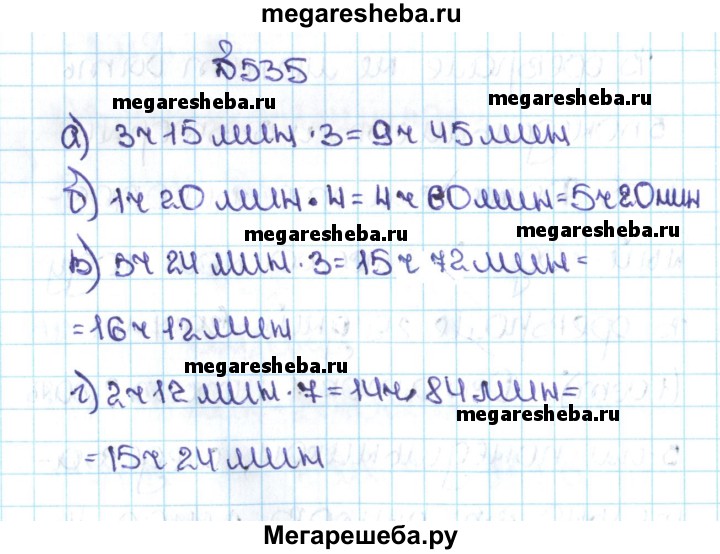 megaresheba.ru
№535
megaresheba.ru megaresheba.ru
а) 3ч 15 мин · 3 = 9ч 45 мин
б) 1ч 20 мин · 4 = 4ч 80 мин = 5ч 20 мин
megaresheba.ru
в) 5ч 24 мин · 3 = 15ч 72 мин =
= 16ч 12 мин
megaresheba.ru
г) 2ч 12 мин · 7 = 14ч 84 мин =
megaresheba.ru
= 15ч 24 мин
Мегарешеба.ру